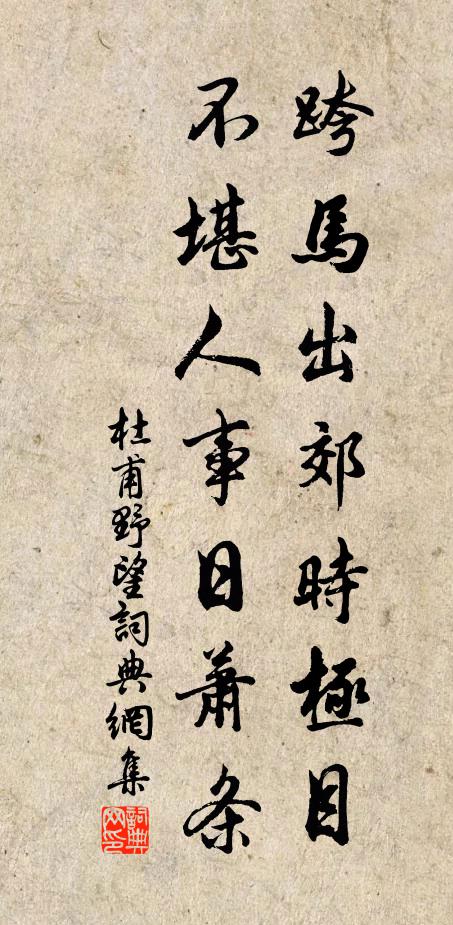 跨馬出郊時極目
不堪人事日蕭条
杜甫野望詞典網集
詞典网印